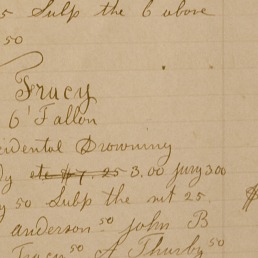 5 Subp the 6 above
50
Tracy
6' Fallon
cidental Drowning
dy etc $7.25 3.00 jury 3.00
y 50 Subp the wit 25
anderson 50 John B
Tracy 50 A Thurby 50
$